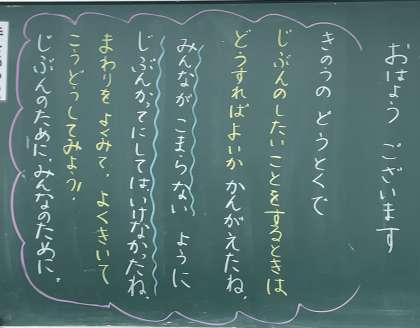 おはよう ございます
きのうの どうとくで
じぶんのしたいことをするときは
どうすればよいか かんがえたね。
みんなが こまらない ように
じぶんかってにしてはいけなかったね。
まわりを よくみて、よくきいて
こうどうしてみよう!
じぶんのために、みんなのために。